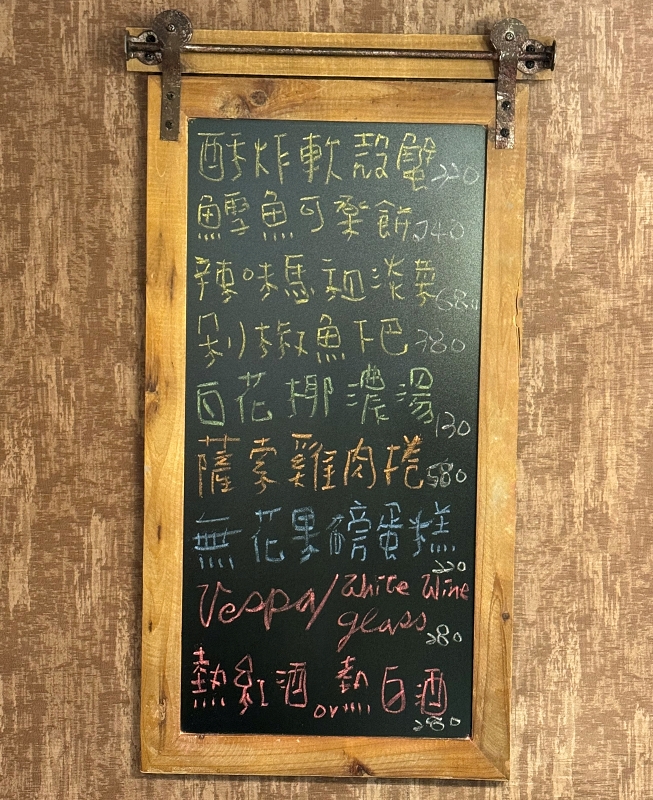 酥炸軟殼蟹 320
鱈魚可樂餅 240
辣味馬祖淡菜 680
剁椒魚下巴 380
白花椰濃湯 130
薩索雞肉捲 580
無花果磅蛋糕 220
Vespa/White Wine
glass 280
熱紅酒 or 熱白酒
280